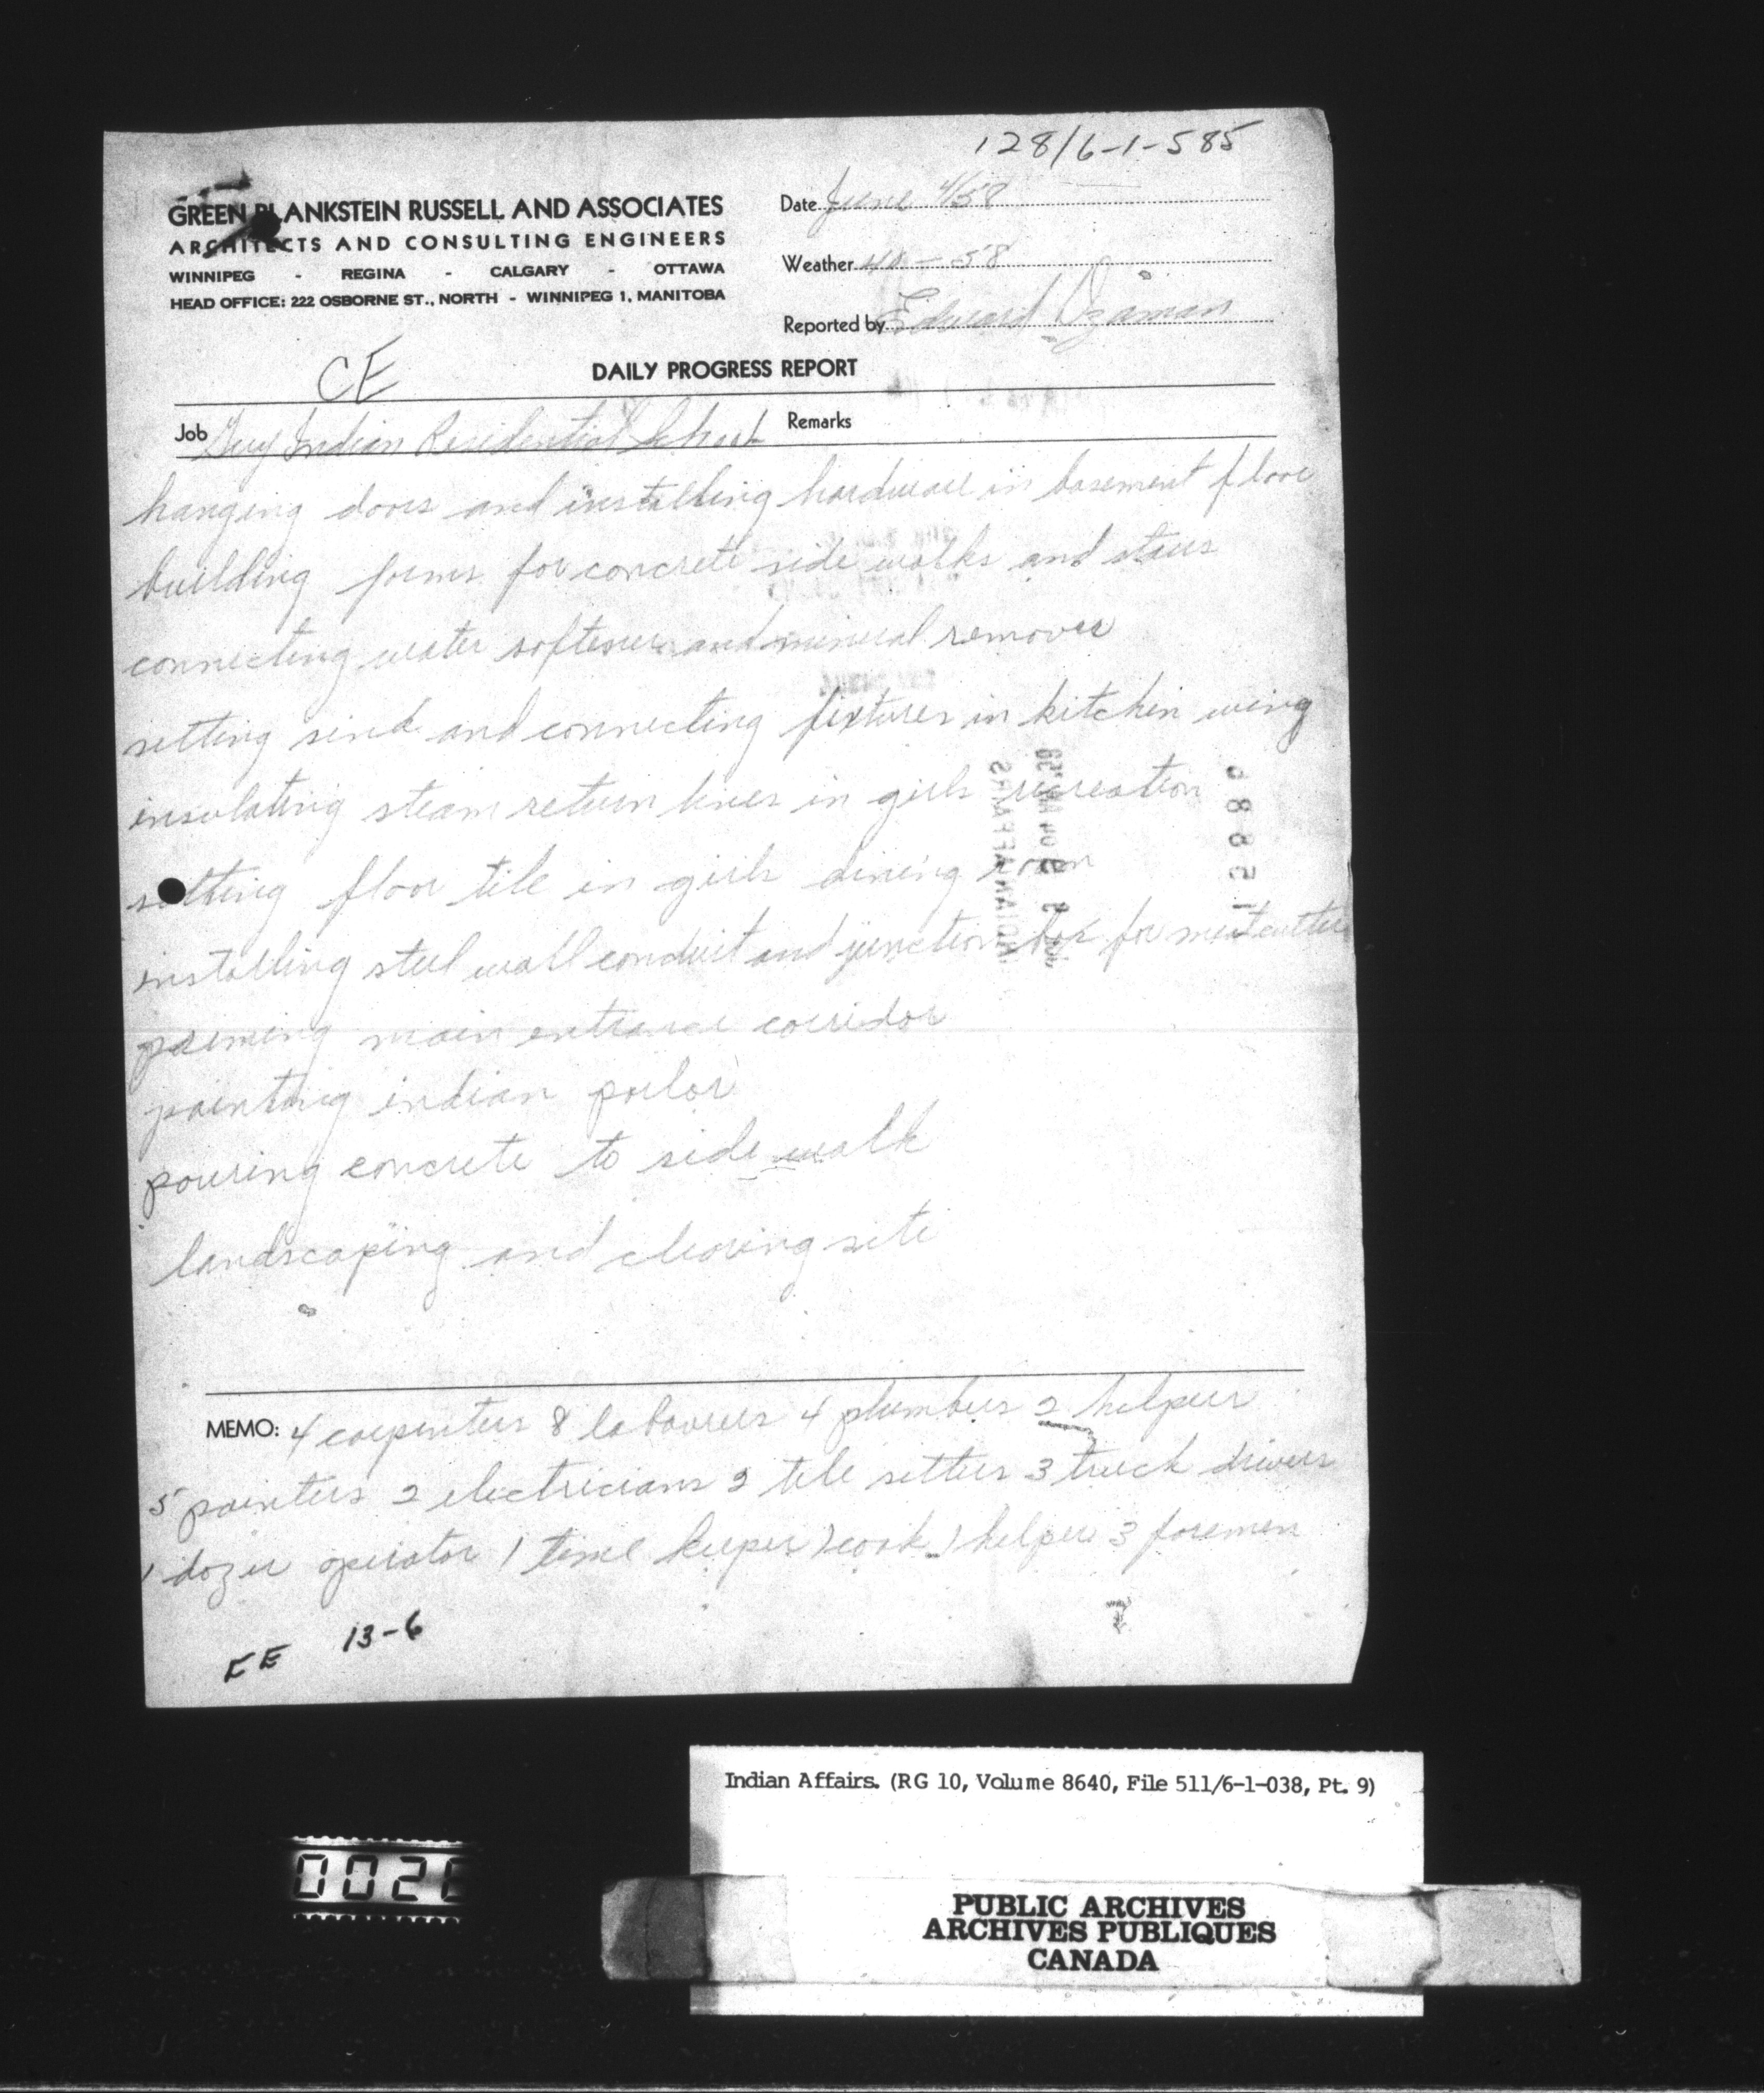 128/6-1-585
GREEN BLANKSTEIN RUSSELL AND ASSOCIATES
ARCHITECTS AND CONSULTING ENGINEERS
WINNIPEG - REGINA - CALGARY - OTTAWA
HEAD OFFICE: 222 OSBORNE ST., NORTH - WINNIPEG 1, MANITOBA
Date June 4/58
Weather 40 - 58
Reported by Edward Ozaman
CE
DAILY PROGRESS REPORT
Job Guy Indian Residential School Remarks
hanging doors and installing hardware in basement floor
building forms for concrete side walks and stairs
connecting water softener and mineral remover
setting sink and connecting fixtures in kitchen wing
insulating steam return lines in girls recreation
setting floor tile in girls dining room
installing steel wall conduit and junction box for meat cutter
priming main entrance corridor
painting indian parlor
pouring concrete to side walk
landscaping and clearing site
MEMO: 4 carpenters 8 labourers 4 plumbers 2 helpers
5 painters 2 electricians 2 tile setters 3 truck drivers
1 dozer operator 1 time keeper 1 cook 1 helper 3 foremen
EE 13-6
Indian Affairs. (RG 10, Volume 8640, File 511/6-1-038, Pt. 9)
002
PUBLIC ARCHIVES
ARCHIVES PUBLIQUES
CANADA